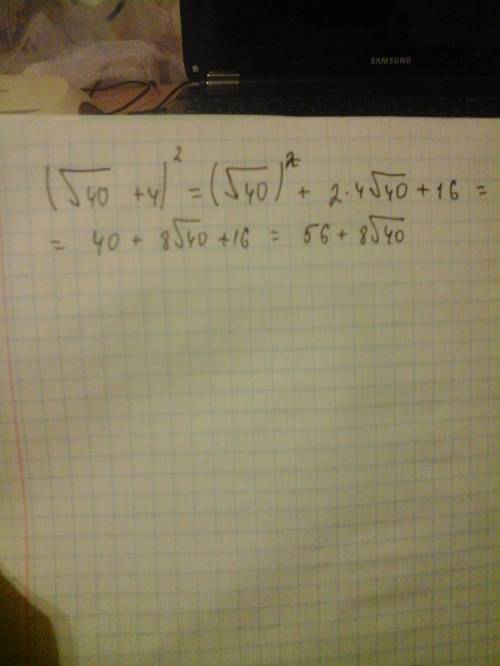 SAMSUNG
(√40 + 4)² = (√40)² + 2·4√40 + 16 =
= 40 + 8√40 + 16 = 56 + 8√40